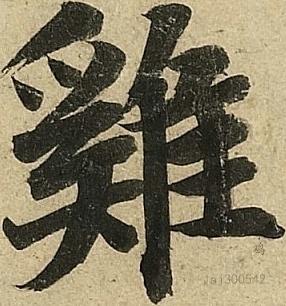 雞
jal300542